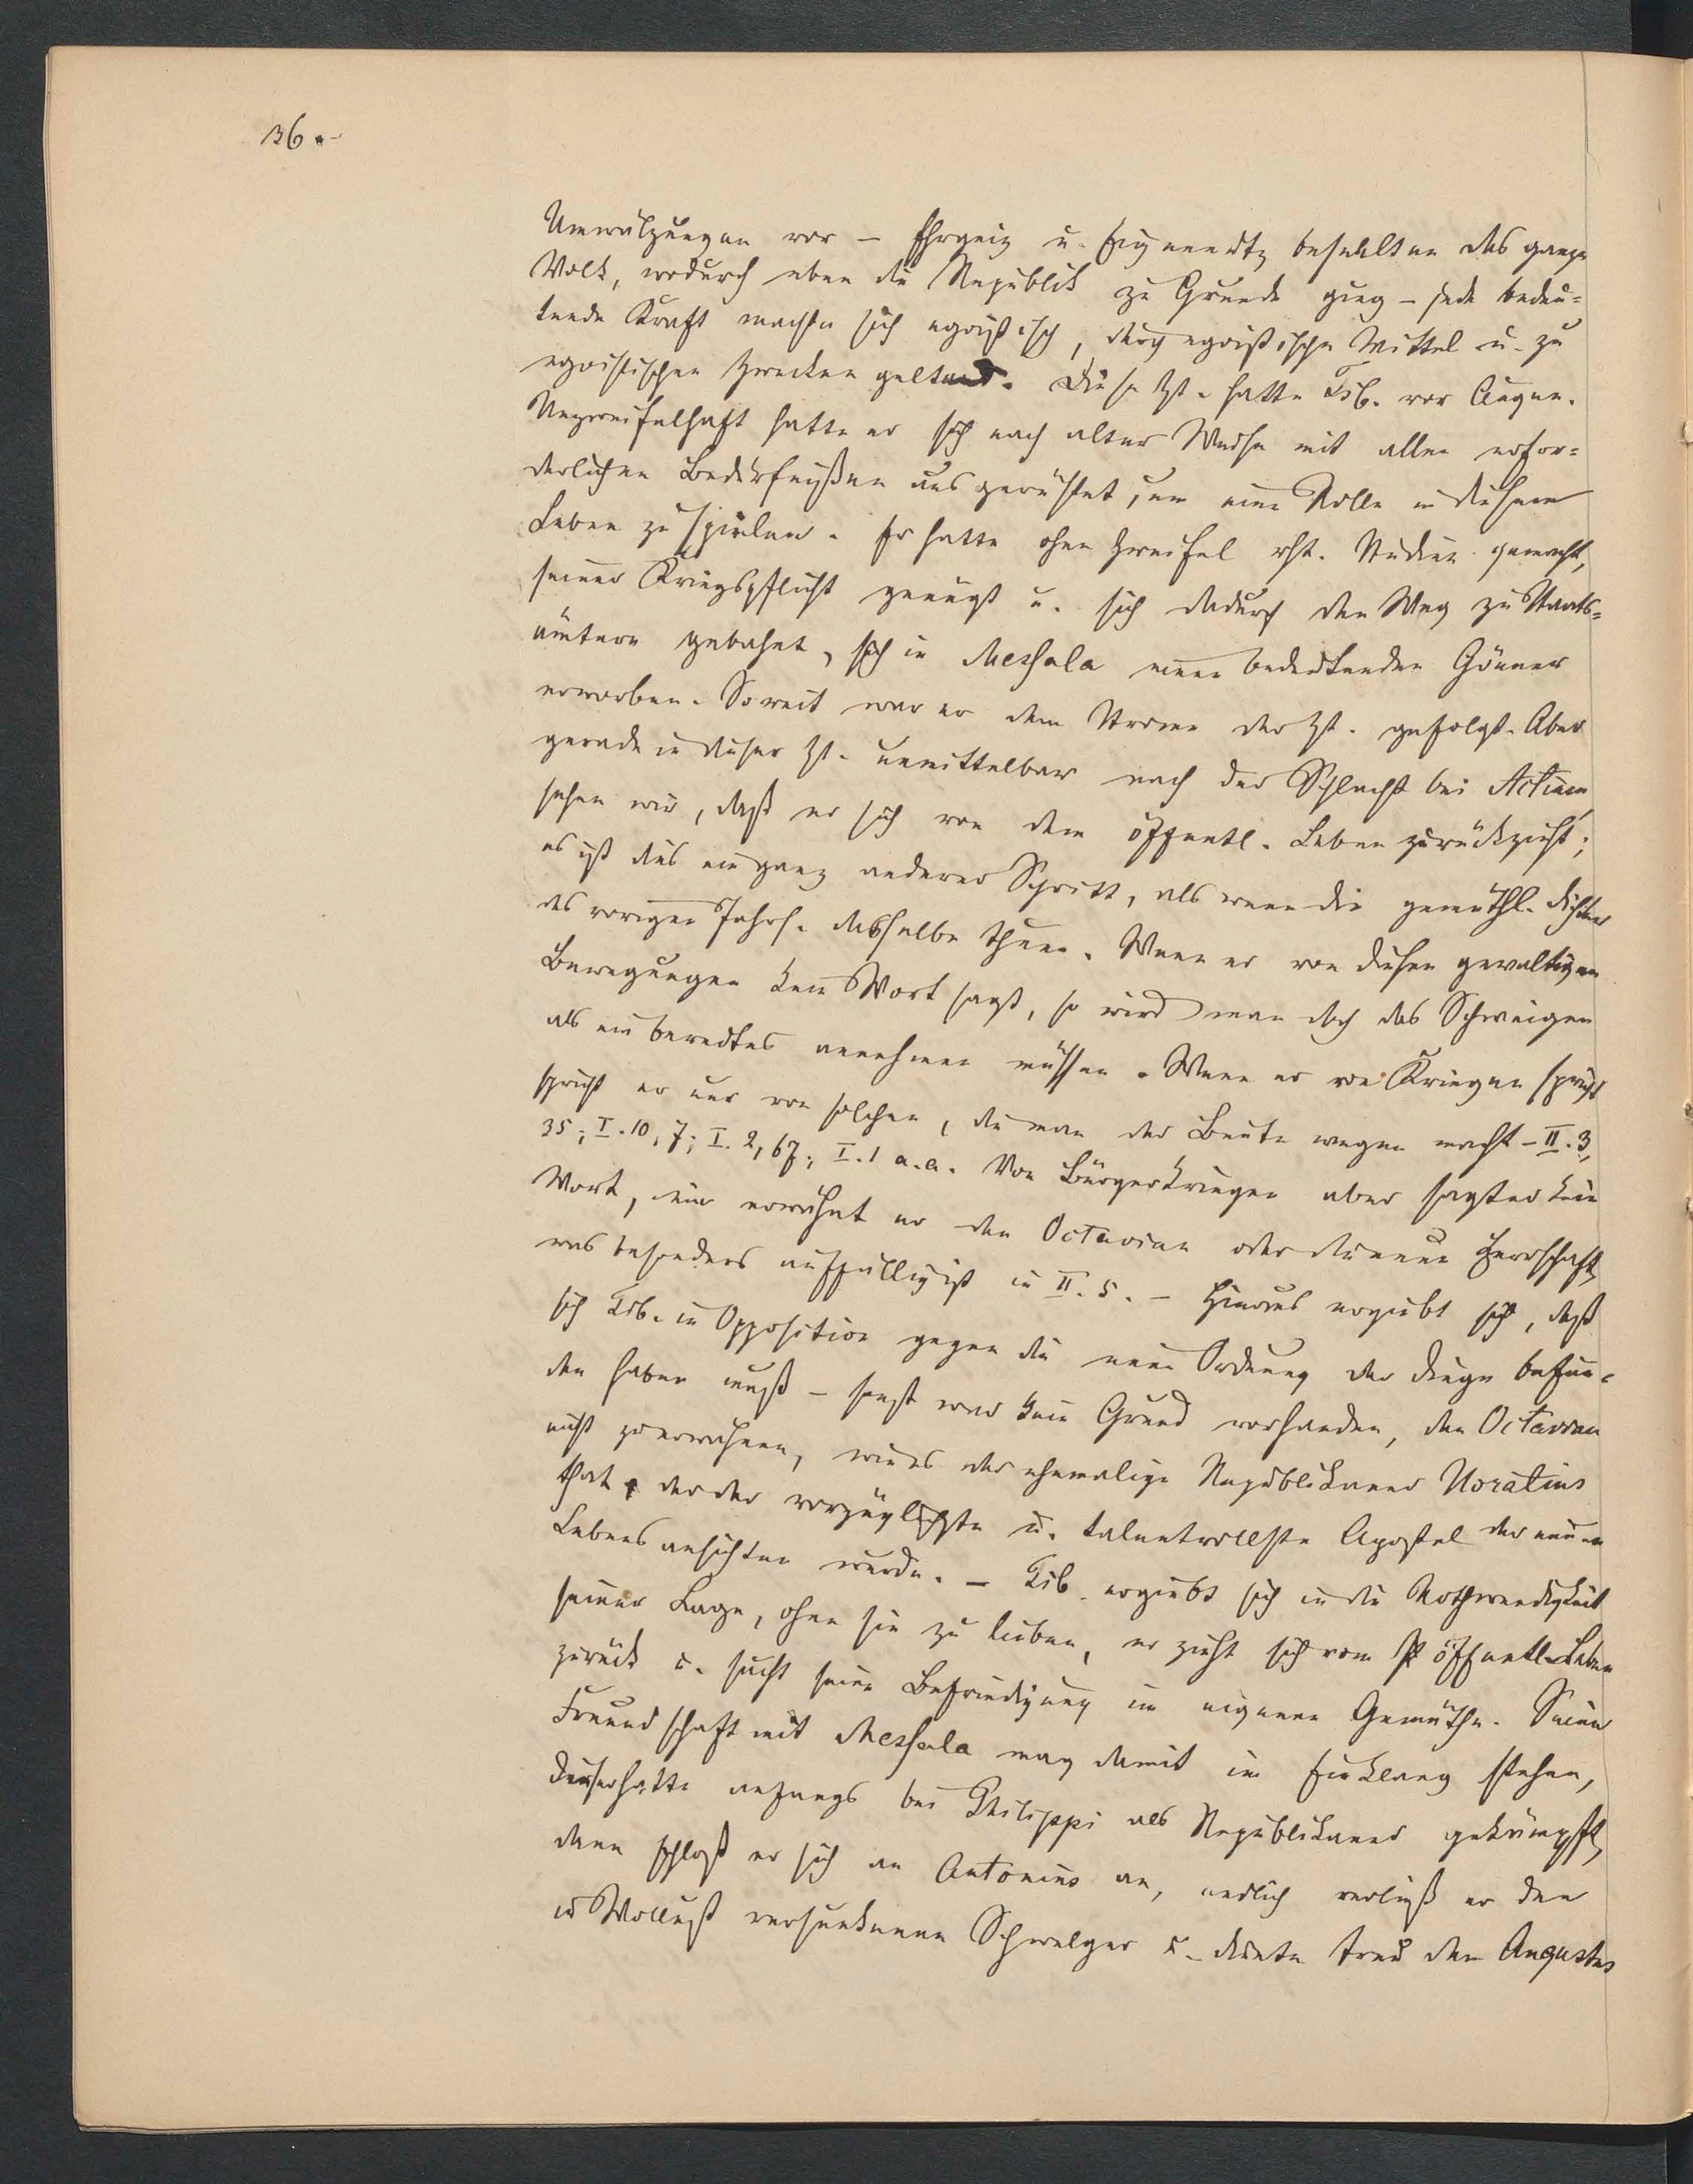 36.
Umwälzungen vor – Ehrgeiz u. Eigennutz beseelten das ganze
Volk, wodurch eben die Republik zu Grunde ging – jede bedeu=
tende Kraft machte sich egoistisch, durch egoistische Mittel u. zu
egoistischen Zwecken geltend. Diese Zt. hatte Tib. vor Augen.
Unzweifelhaft hatte er sich nach alter Weise mit allen erfor=
derlichen Bedürfnißen ausgerüstet, um eine Rolle in diesem
Leben zu spielen. Er hatte ohne Zweifel rht. Studien gemacht,
seiner Kriegspflicht genügt u. sich dadurch den Weg zu Staats=
ämtern gebahnt, sich in Messala einen bedeutenden Gönner
erworben. Soweit war er dem Strome der Zt. gefolgt. Aber
gerade in dieser Zt. unmittelbar nach der Schlacht bei Actium
sehen wir, daß er sich von dem öffentl. Leben zurückzieht;
es ist dies ein ganz anderer Schritt, als wenn die gemüthl. Dichter
des vorigen Jahrh. dasselbe thun. Wenn er von diesen gewaltigen
Bewegungen kein Wort sagt, so wird man doch das Schweigen
als ein beredtes annehmen müssen. Wenn er von Kriegen spricht
spricht er nur von solchen, die man der Beute wegen macht – II. 3,
35; I. 10, 7; I. 2, 67; I. 1 a. a. Von Bürgerkriegen aber sagt er kein
Wort, nie erwähnt er den Octavian oder die neue Herrschaft,
was besonders auffällig ist in II. 5. – Hieraus ergiebt sich, daß
sich Tib. in Opposition gegen die neue Ordnung der Dinge befun=
den haben muß – sonst war kein Grund vorhanden, den Octavian
nicht zu erwähnen, wie es der ehemalige Republikaner Horatius
that, der der vorzüglichste u. talentvollste Apostel der neuen
Lebensansichten wurde. – Tib. ergiebt sich in die Nothwendigkeit
seiner Lage, ohne sie zu lieben, er zieht sich vom öffentl. Leben
zurück u. sucht seine Befriedigung im eigenen Gemüthe. Seine
Freundschaft mit Messala mag damit im Einklang stehen,
dieser hatte anfangs bei Philippi als Republikaner gekämpft,
dann schloß er sich an Antonius an, endlich verließ er den
in Wollust versunkenen Schwelger u. diente treu dem Augustus